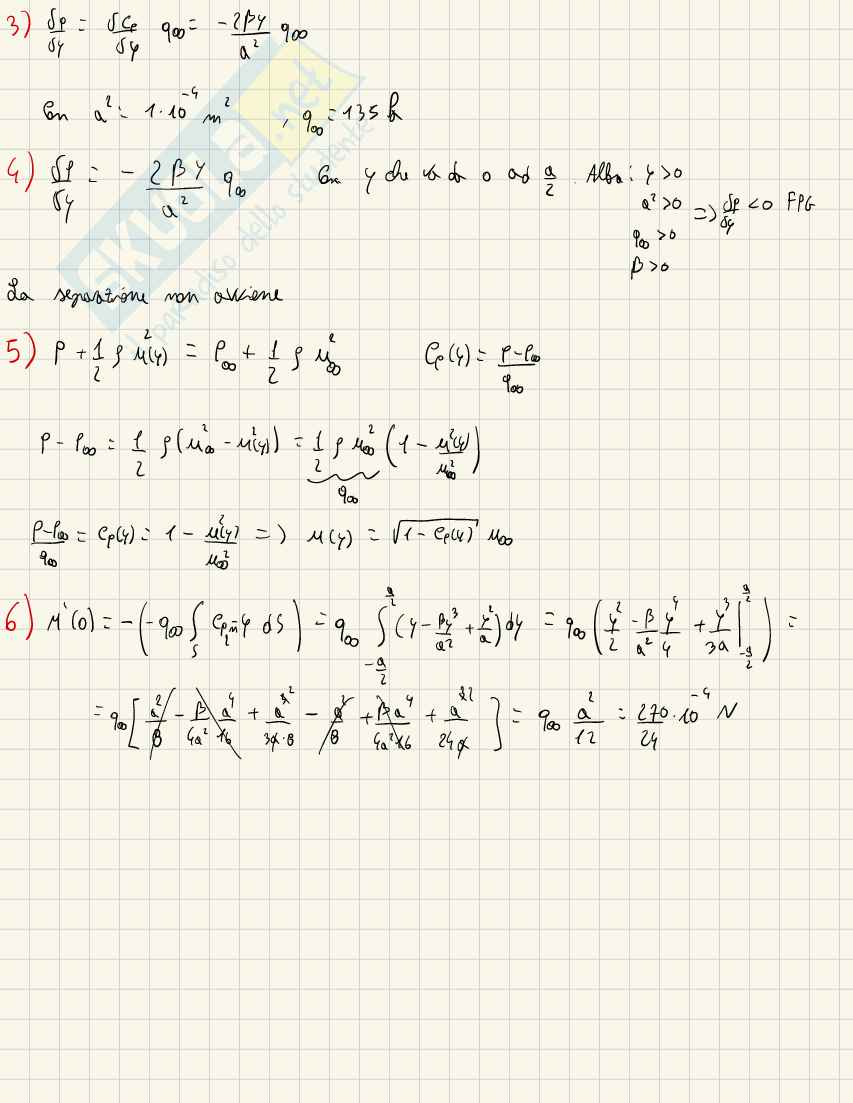 3) δp/δy = δCp/δy q∞ = -2βy/a² q∞
Con a² = 1·10⁻⁴ m² , q∞ = 135 Pa
4) δp/δy = - 2βy/a² q∞ Con y che va da 0 ad a/2. Allora: y>0
a²>0 => δp/δy <0 FPG
q∞>0
β>0
La separazione non avviene
5) P + 1/2 ρ u²(y) = P∞ + 1/2 ρ u∞² Cp(y) = P-P∞/q∞
P - P∞ = 1/2 ρ(u∞² - u²(y)) = 1/2 ρ u∞² (1 - u²(y)/u∞²)
q∞
P-P∞/q∞ = Cp(y) = 1 - u²(y)/u∞² => u(y) = √(1-Cp(y)) u∞
6) M'(0) = -(-q∞ ∫S Cp y dS) = q∞ ∫_{-a/2}^{a/2} (y - βy³/a² + y²/a) dy = q∞ (y²/2 - β/a² y⁴/4 + y³/3a |_{-a/2}^{a/2}) =
= q∞ [a²/8 - β/4a² a⁴/16 + a³²/3a·8 - a²/8 + βa⁴/4a²16 + a³²/24a] = q∞ a²/12 = 270/24 ·10⁻⁴ N
SKUOLA.net
il paradiso dello studente